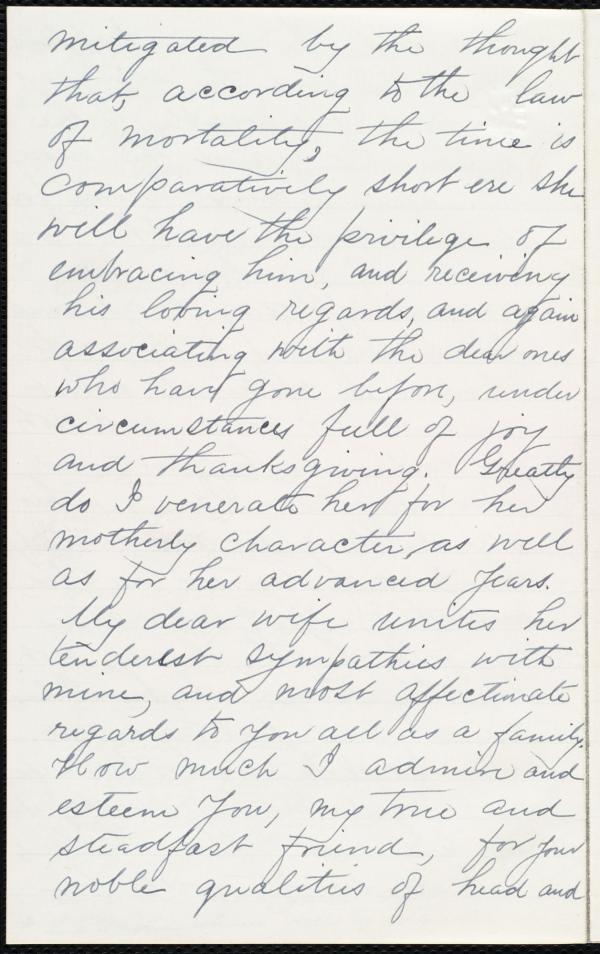 mitigated by the thought
that, according to the law
of mortality, the time is
comparatively short ere she
will have the privilege of
embracing him, and receiving
his loving regards, and again
associating with the dear ones
who have gone before, under
circumstances full of joy
and thanksgiving. Greatly
do I venerate her for her
motherly character, as well
as for her advanced years.
My dear wife unites her
tenderest sympathies with
mine, and most affectionate
regards to you all as a family.
How much I admire and
esteem you, my true and
steadfast friend, for your
noble qualities of head and